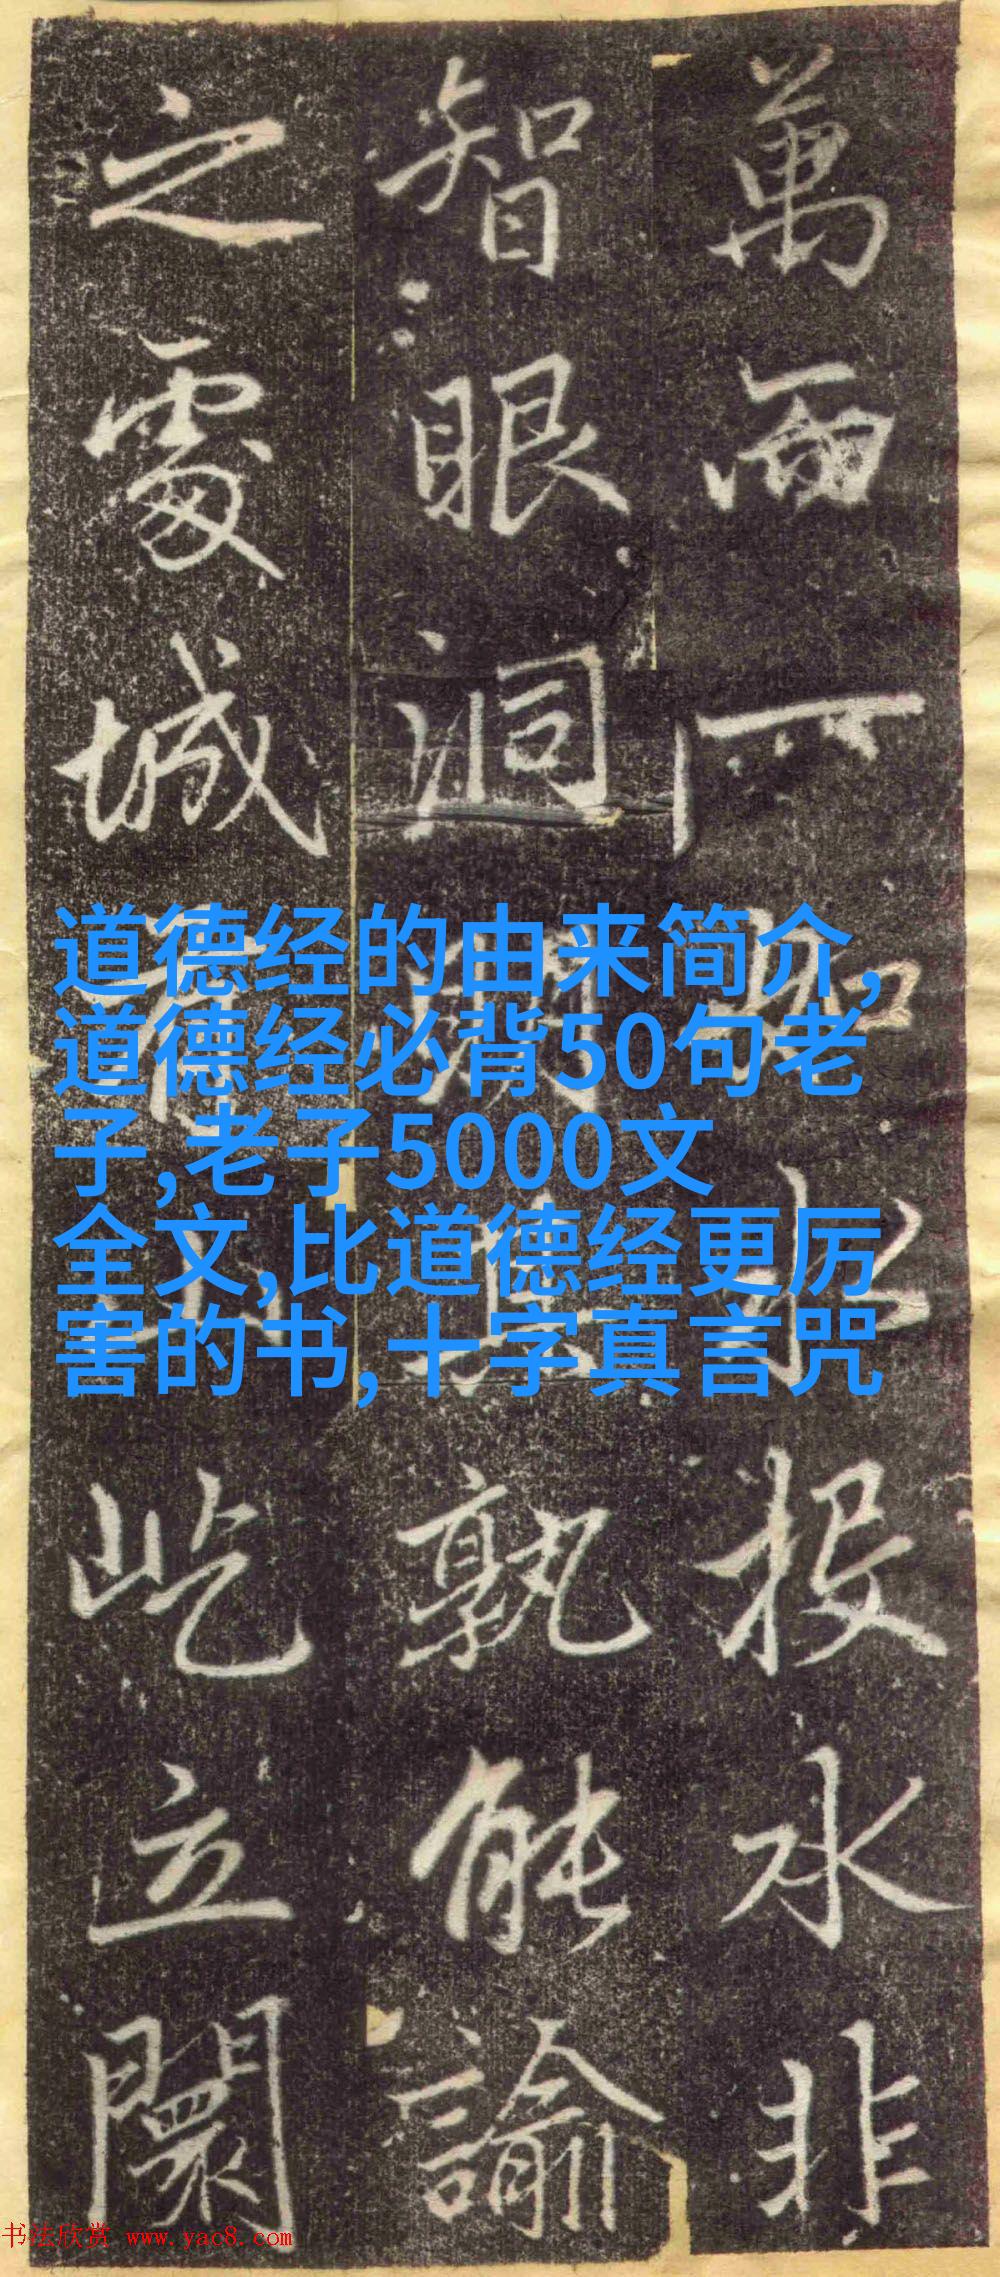 萬而一如水投水非
智眼洞明其孰能諭
之處城居山屹立闤
道德经的由来简介,
道德经必背50句老
子,老子5000文
全文,比道德经更厉
害的书,十字真言咒
书法欣赏 www.yac8.com